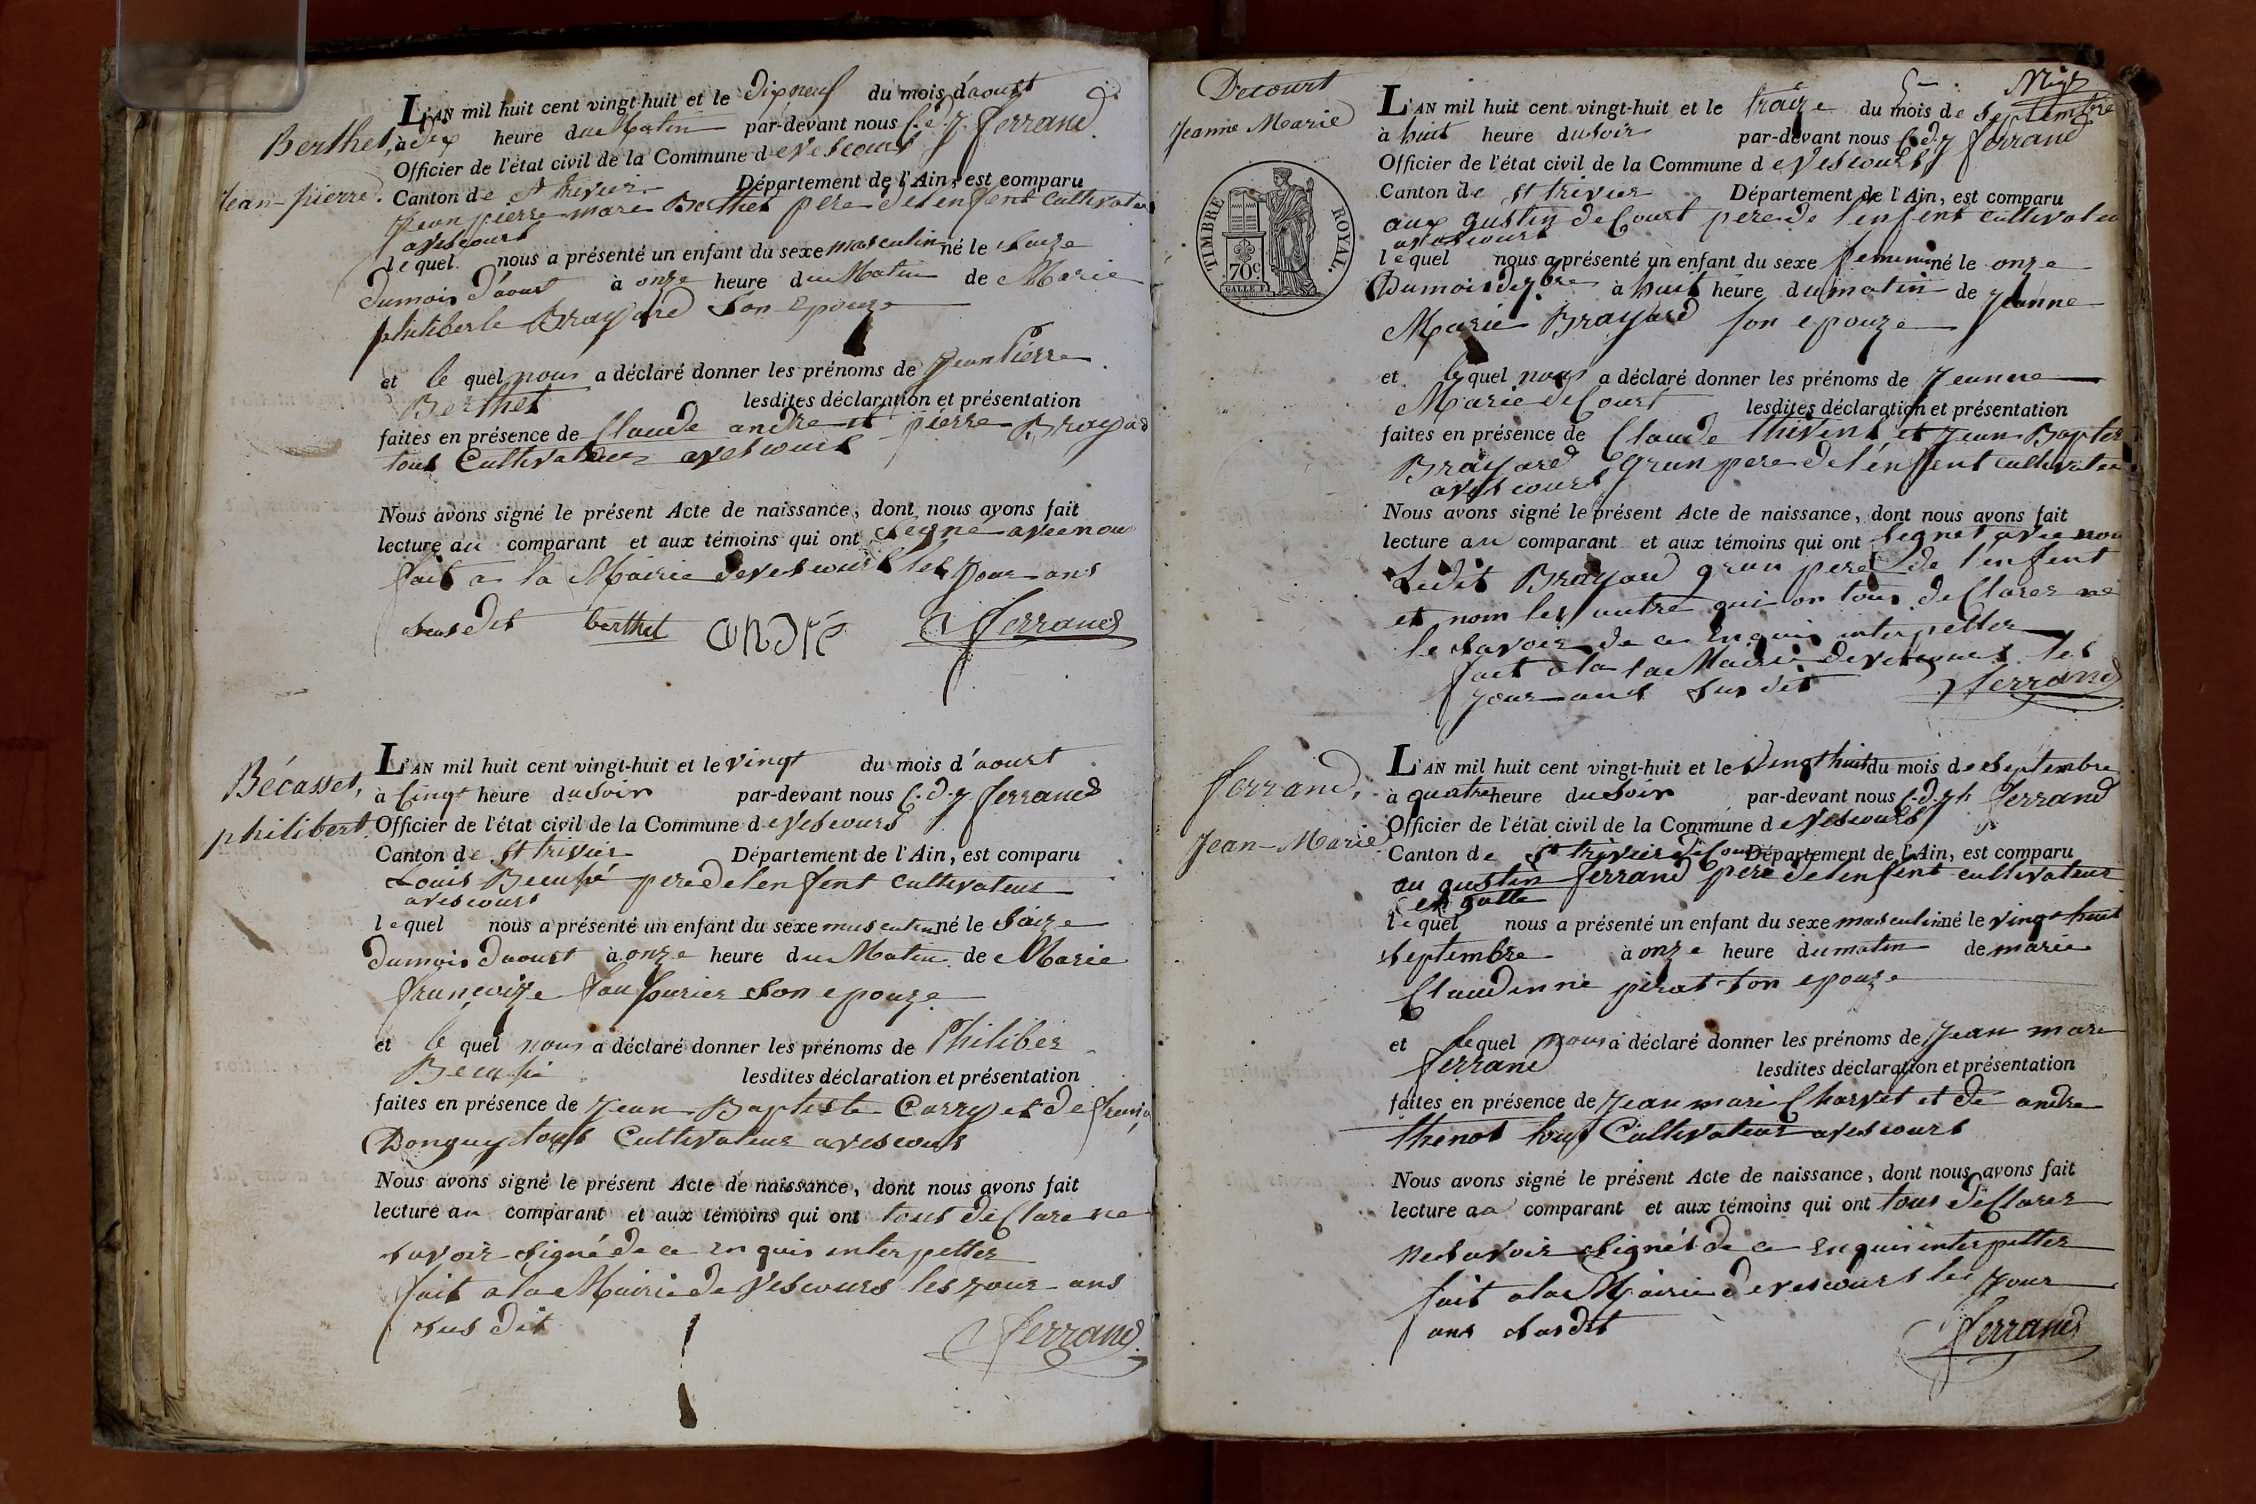 Berthet,
Jean-pierre.
L'AN mil huit cent vingt-huit et le dixneuf du mois d'aoust
à dix heure du Matin par-devant nous C. d. J ferrand
Officier de l'état civil de la Commune de vescours
Canton de St trivier Département de l'Ain, est comparu
Jean pierre marie Berthet pere de lenfent Cultivateur
avescours
lequel nous a présenté un enfant du sexe masculin né le saize
dumois d'aoust à onze heure du Matin de Marie
philiberte Brayard son epouze
et le quel nous a déclaré donner les prénoms de Jean Pierre
Berthet lesdites déclaration et présentation
faites en présence de Claude andre et pierre Brayard
tous Cultivateur avescours
Nous avons signé le présent Acte de naissance, dont nous avons fait
lecture au comparant et aux témoins qui ont signé avec nou
fait a la Mairie devescours les Jour ans
sus dit berthet andré ferrand
Bécasset,
philibert.
L'AN mil huit cent vingt-huit et le vingt du mois d'aoust
à Cingt heure du soir par-devant nous C. d. J ferrand
Officier de l'état civil de la Commune de vescours
Canton de St trivier Département de l'Ain, est comparu
Louis Becassé pere de lenfent cultivateur
avescours
lequel nous a présenté un enfant du sexe musculin né le saize
dumois daoust à onze heure du Matin de Marie
françoize son epouze
et le quel nous a déclaré donner les prénoms de Philiber
Becassé lesdites déclaration et présentation
faites en présence de Jean Baptiste Carry et de
Donguy tous Cultivateur avescours
Nous avons signé le présent Acte de naissance, dont nous avons fait
lecture au comparant et aux témoins qui ont tous de Clare ne
savoir signé de ce enquis interpeller
fait a la Mairie de Vescours les jour ans
sus dit ferrand
Decourt
Jeanne Marie
TIMBRE ROYAL.
70c
L'AN mil huit cent vingt-huit et le traize du mois de Septembre
à huit heure du soir par-devant nous C. d. J ferrand
Officier de l'état civil de la Commune de Vescours
Canton de St trivier Département de l'Ain, est comparu
aux gustin de Court pere de l'enfent cultivateu
avescours
lequel nous a présenté un enfant du sexe feminin né le onze
Dumois de 7bre à huit heure du matin de Jeanne
Marie Brayard son epouze
et le quel nous a déclaré donner les prénoms de Jeanne
Marie deCourt lesdites déclaration et présentation
faites en présence de Claude thivent et Jean Baptis
Brayard gran pere de l'enffent cultivateu
avescours
Nous avons signé le présent Acte de naissance, dont nous avons fait
lecture au comparant et aux témoins qui ont signet avec nou
Ledit Brayard gran pere de l'enfent
et nom les autre qui on tous de Clarer ne
le savoir de ce enquis interpeller
fait a la la Mairie devescours les
jour ans sus dit ferrand
ferrand,
Jean-Marie.
L'AN mil huit cent vingt-huit et le vingt huit du mois de septembre
à quatre heure du soir par-devant nous C. d. J ferrand
Officier de l'état civil de la Commune de Vescours
Canton de St trivier de Court Département de l'Ain, est comparu
au gustin ferrand pere de lenfent cultivateur
lequel nous a présenté un enfant du sexe masculin né le vingt huit
septembre à onze heure du matin de marie
Claudinne pirat son epouze
et lequel nous a déclaré donner les prénoms de Jean mari
ferrand lesdites déclaration et présentation
faites en présence de Jean mari Charvet et de andre
thenot tous Cultivateur avescours
Nous avons signé le présent Acte de naissance, dont nous avons fait
lecture au comparant et aux témoins qui ont tous de Clarer
ne savoir signét de ce enquis interpeller
fait a la Mairie de vescours les jour
ans sus dit ferrand